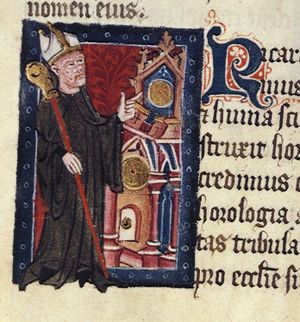 nomen eius.
Ricar
mus
⁊ huius sci
struxit hor
credimus e
horologia a
tas tribula
pro eccłie si